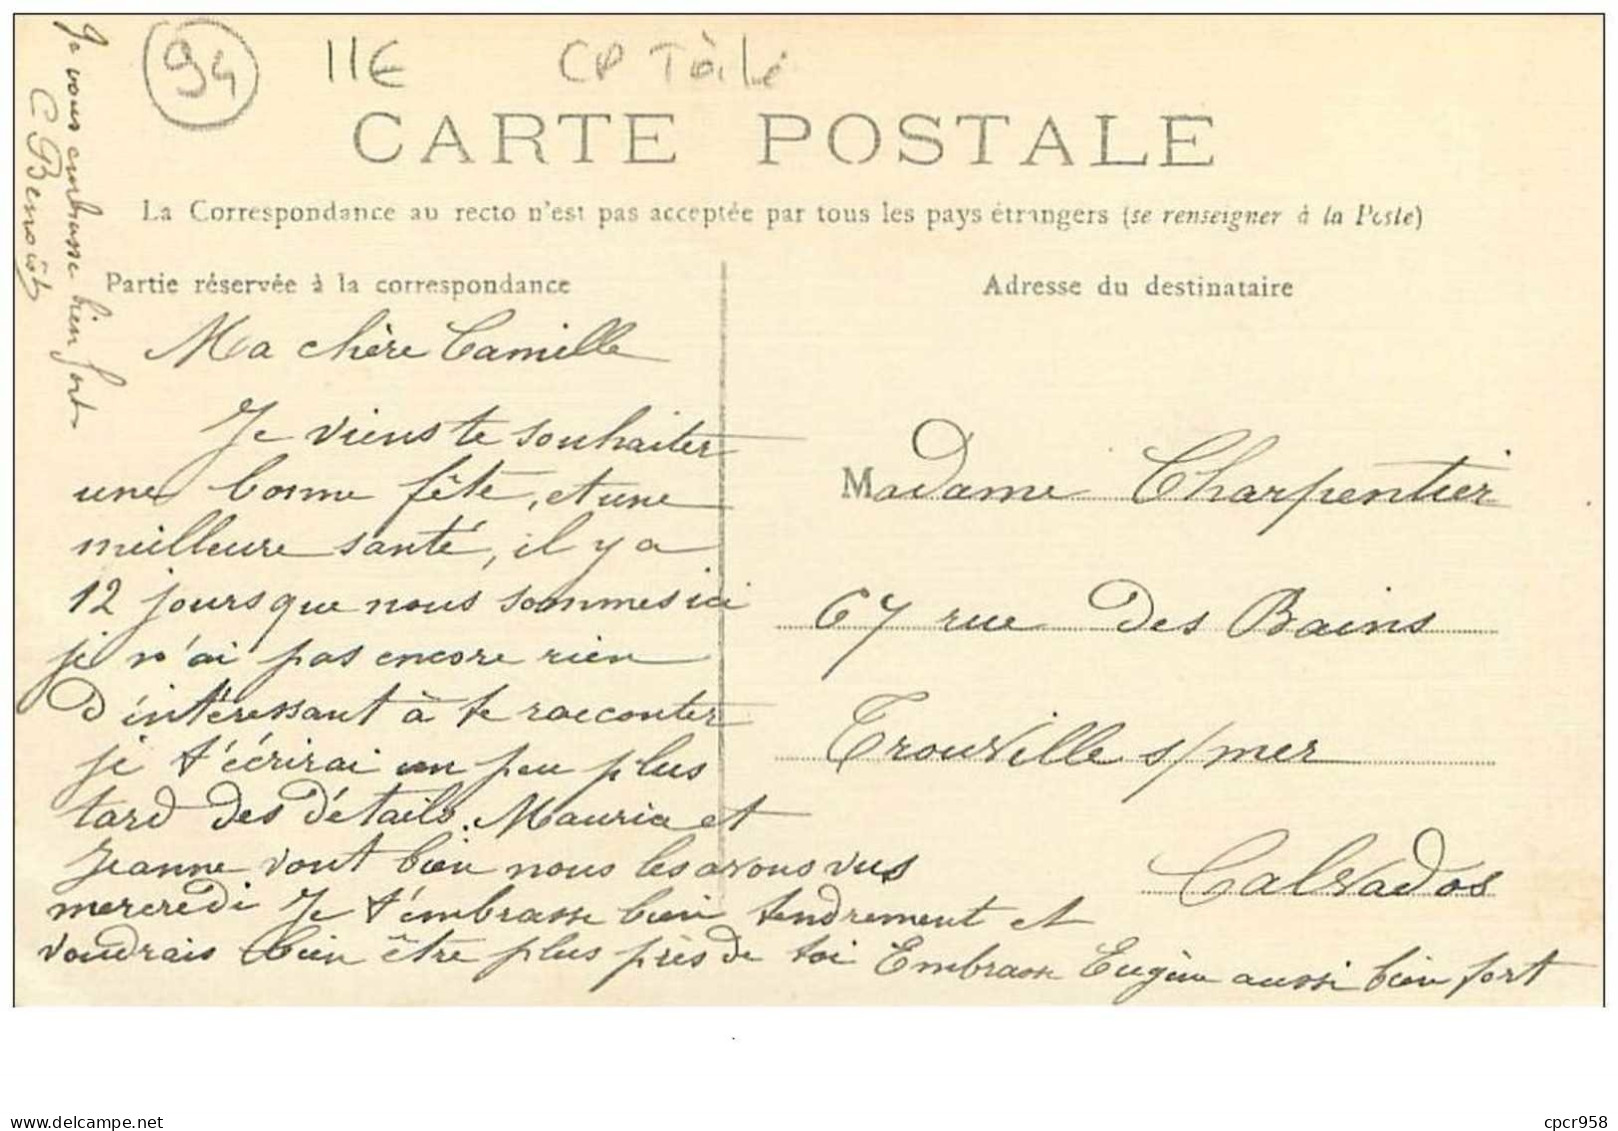 94
11€
CP Toilé
CARTE POSTALE
La Correspondance au recto n'est pas acceptée par tous les pays étrangers (se renseigner à la Poste)
Partie réservée à la correspondance
Adresse du destinataire
Ma chère Camille
Je viens te souhaiter
une bonne fête, et une
meilleure santé, il y a
12 jours que nous sommes ici
je n'ai pas encore rien
d'intéressant à te raconter
je t'écrirai un peu plus
tard des détails. Mauria et
Jeanne vont bien nous les avons vus
mercredi Je t'embrasse bien tendrement et
voudrais bien être plus près de toi Embrasse Eugène aussi bien fort
Je vous embrasse bien fort
C Benoist
Madame Charpentier
67 rue des Bains
Trouville s/mer
Calvados
delcampe.net
cpcr958